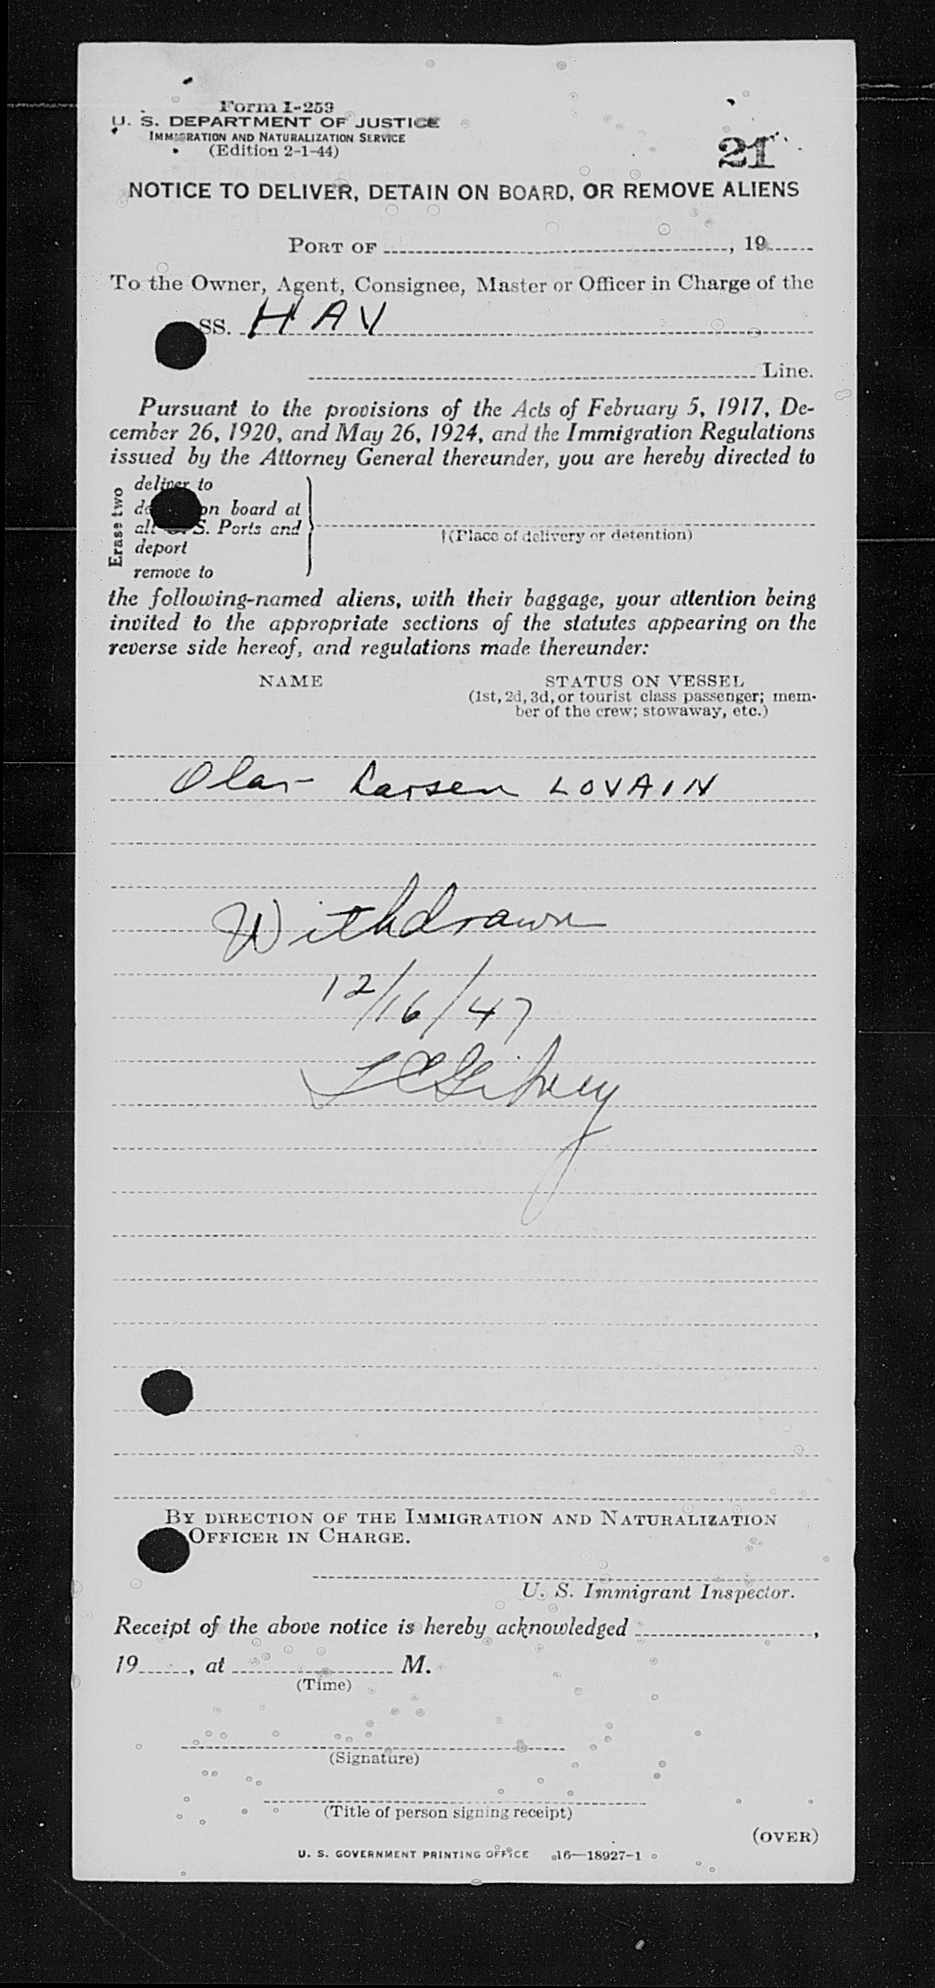 Form I-259
U. S. DEPARTMENT OF JUSTICE
IMMIGRATION AND NATURALIZATION SERVICE
(Edition 2-1-44)
21
NOTICE TO DELIVER, DETAIN ON BOARD, OR REMOVE ALIENS
PORT OF , 19
To the Owner, Agent, Consignee, Master or Officer in Charge of the
SS. HAV
Line.
Pursuant to the provisions of the Acts of February 5, 1917, De-
cember 26, 1920, and May 26, 1924, and the Immigration Regulations
issued by the Attorney General thereunder, you are hereby directed to
Erase two
deliver to
on board at
all U. S. Ports and
deport
remove to
(Place of delivery or detention)
the following-named aliens, with their baggage, your attention being
invited to the appropriate sections of the statutes appearing on the
reverse side hereof, and regulations made thereunder:
NAME STATUS ON VESSEL
(1st, 2d, 3d, or tourist class passenger; mem-
ber of the crew; stowaway, etc.)
Larsen LOVAIN
Withdrawn
12/16/47
BY DIRECTION OF THE IMMIGRATION AND NATURALIZATION
OFFICER IN CHARGE.
U. S. Immigrant Inspector.
Receipt of the above notice is hereby acknowledged ,
19 , at M.
(Time)
(Signature)
(Title of person signing receipt)
(OVER)
U. S. GOVERNMENT PRINTING OFFICE 16—18927-1